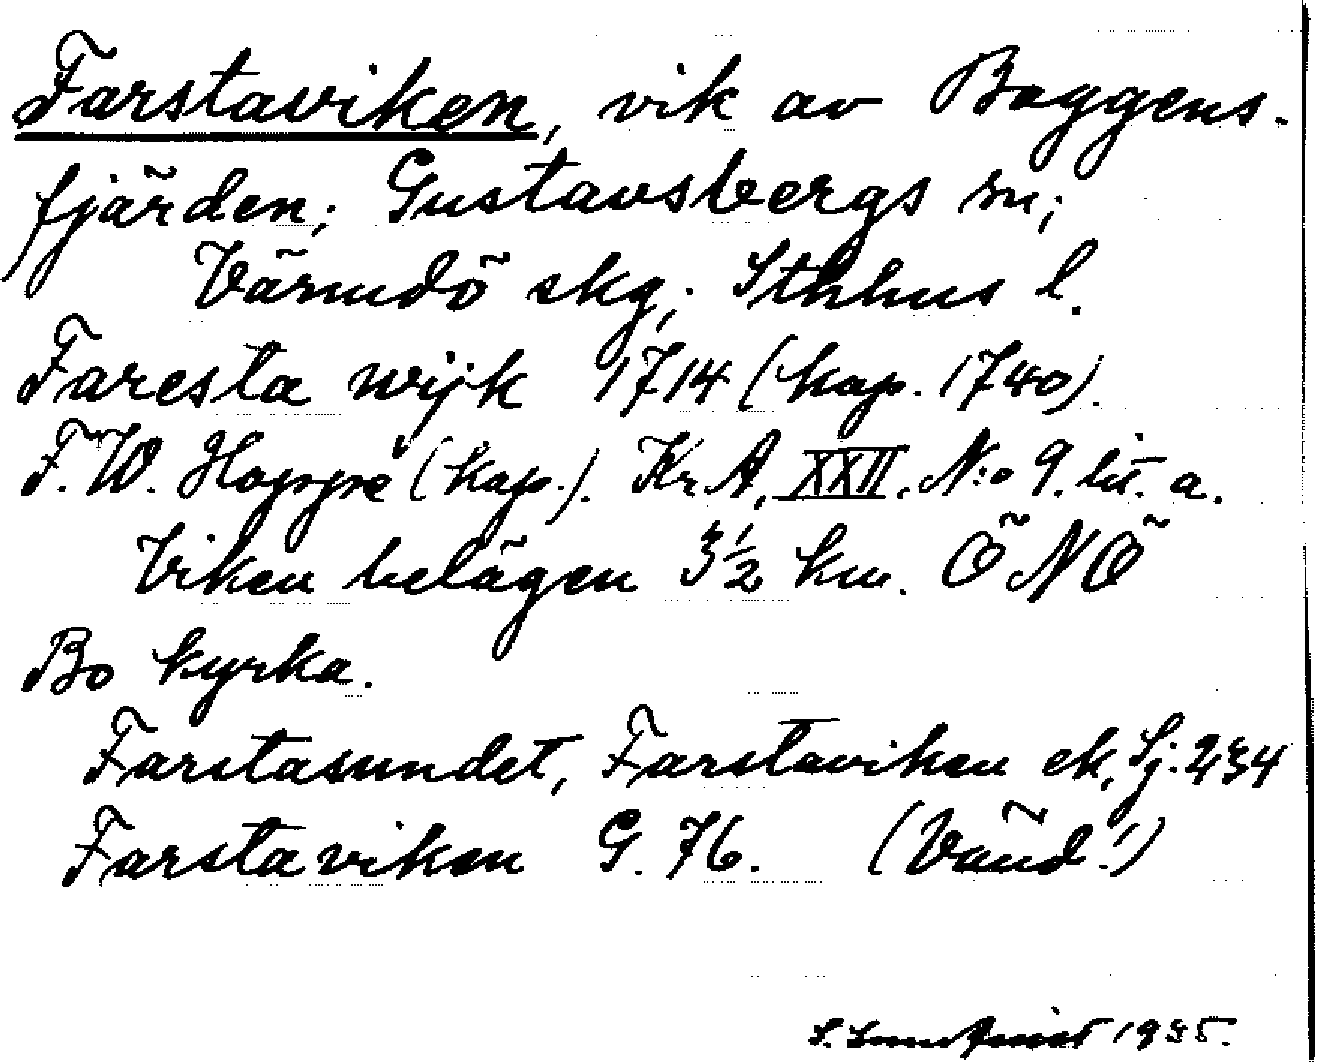 Farstaviken, vik av Baggens-
fjärden; Gustavsbergs sn;
Värmdö skg; Sthlms l.
Faresta wijk 1714 (kop. 1740).
F. W. Hoppe (kop.). Kr. A. XXII. N:o 9. lit. a.
Viken belägen 3½ km. ÖNÖ
Bo kyrka.
Farstasundet, Farstaviken ek, Sj. 234
Farstaviken G. 76. (Vänd!)
S. 1935.